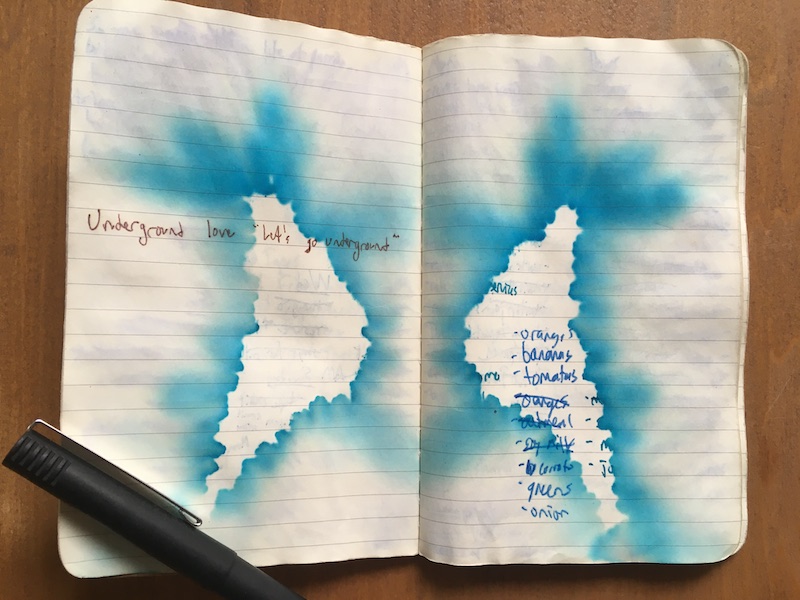 Underground love "Let's go underground"
- oranges
- bananas
- tomatoes
- oranges
- oatmeal
- soy milk
- greens
- onion